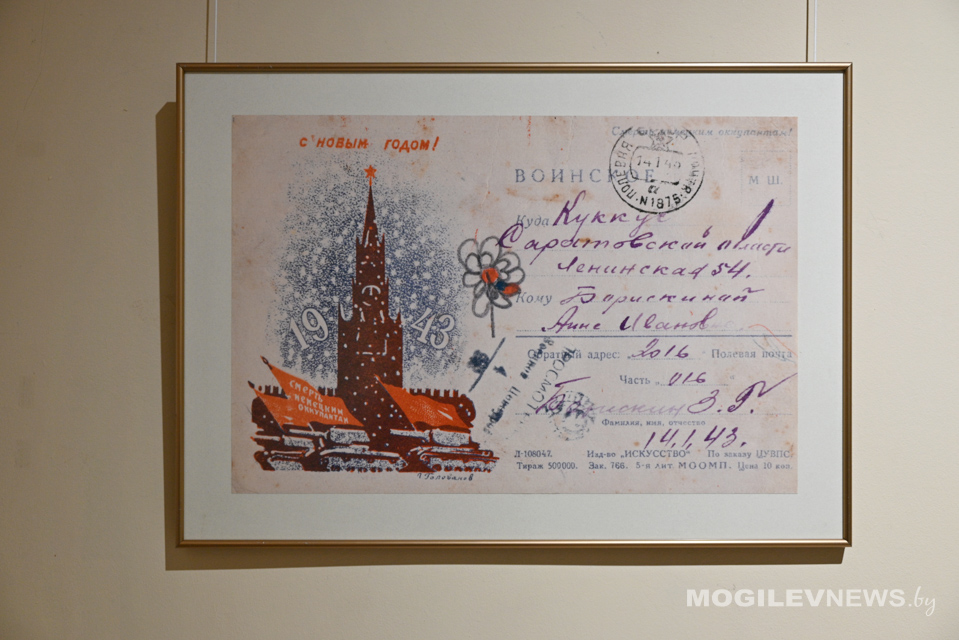 С НОВЫМ ГОДОМ!
19 43
СМЕРТЬ
НЕМЕЦКИМ
ОККУПАНТАМ
Смерть немецким оккупантам!
ВОИНСКОЕ
М. Ш.
14 1 43
N 1875
Куда Куккус
Саратовской области
Ленинская 54.
Кому Борискиной
Анне Иванов
ПРОСМОТР
Военной Цензурой
Обратный адрес: 2016 Полевая почта
Часть 016
Борискин З. Г.
Фамилия, имя, отчество
14.1.43.
Л-108047. Изд-во „ИСКУССТВО" По заказу ЦУВПС.
Тираж 500000. Зак. 766. 5-я лит МООМП. Цена 10 коп.
MOGILEVNEWS.by